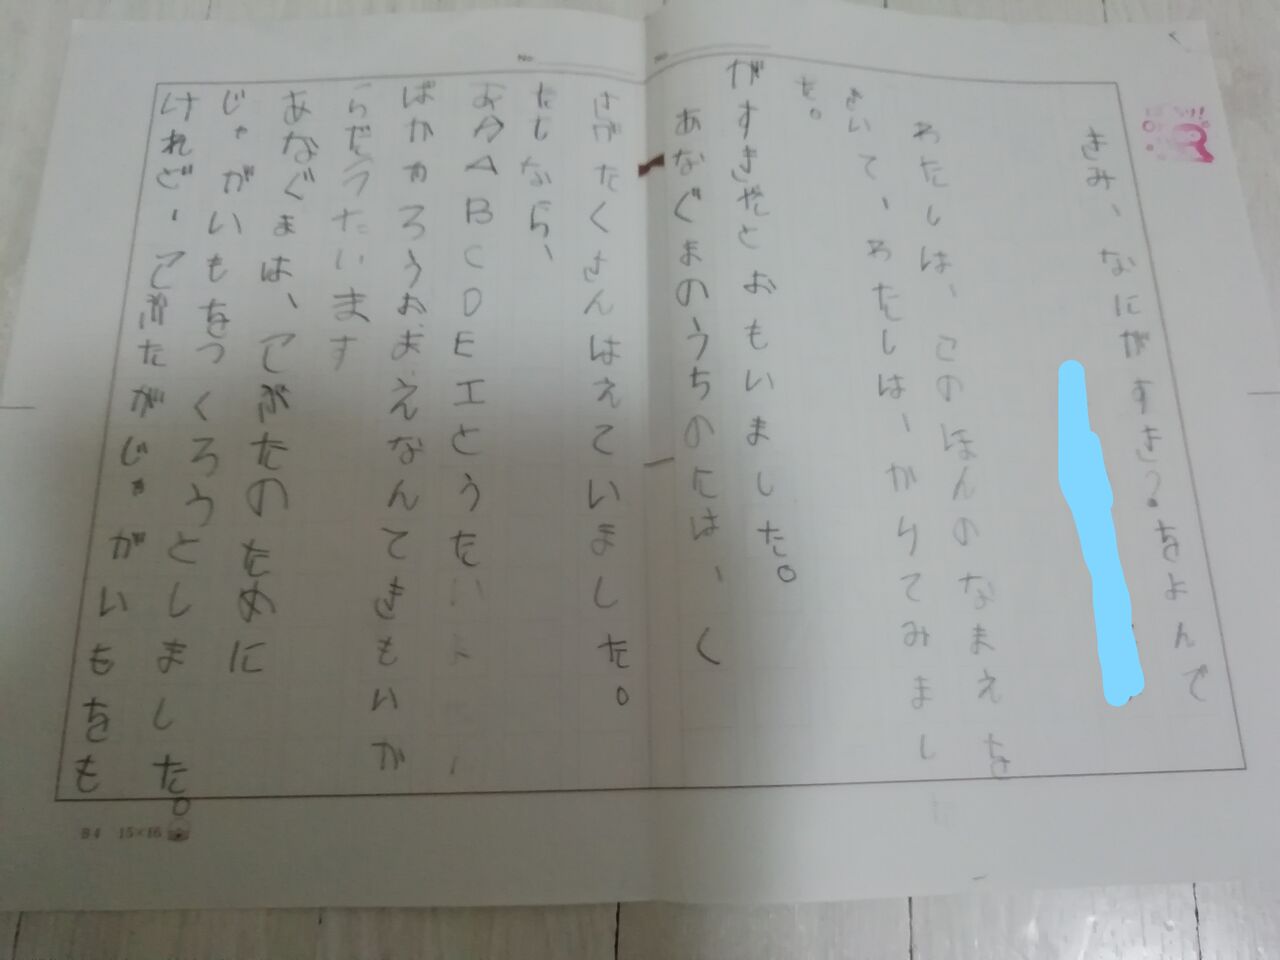 きみ、なにがすき?をよんで
わたしは、このほんのなまえを
きいて、わたしは、かりてみまし
た。
がすきだとおもいました。
あなぐまのうちのには、く
さがたくさんはえていました。
たしなら、
ABCDEエとうた
ばかかろうおまえなんてきもいか
らだうたいます
あなぐまは、こぶたのために
じゃがいもをつくろうとしました。
けれど、こぶたがじゃがいもをも
No
No
B4 15×16